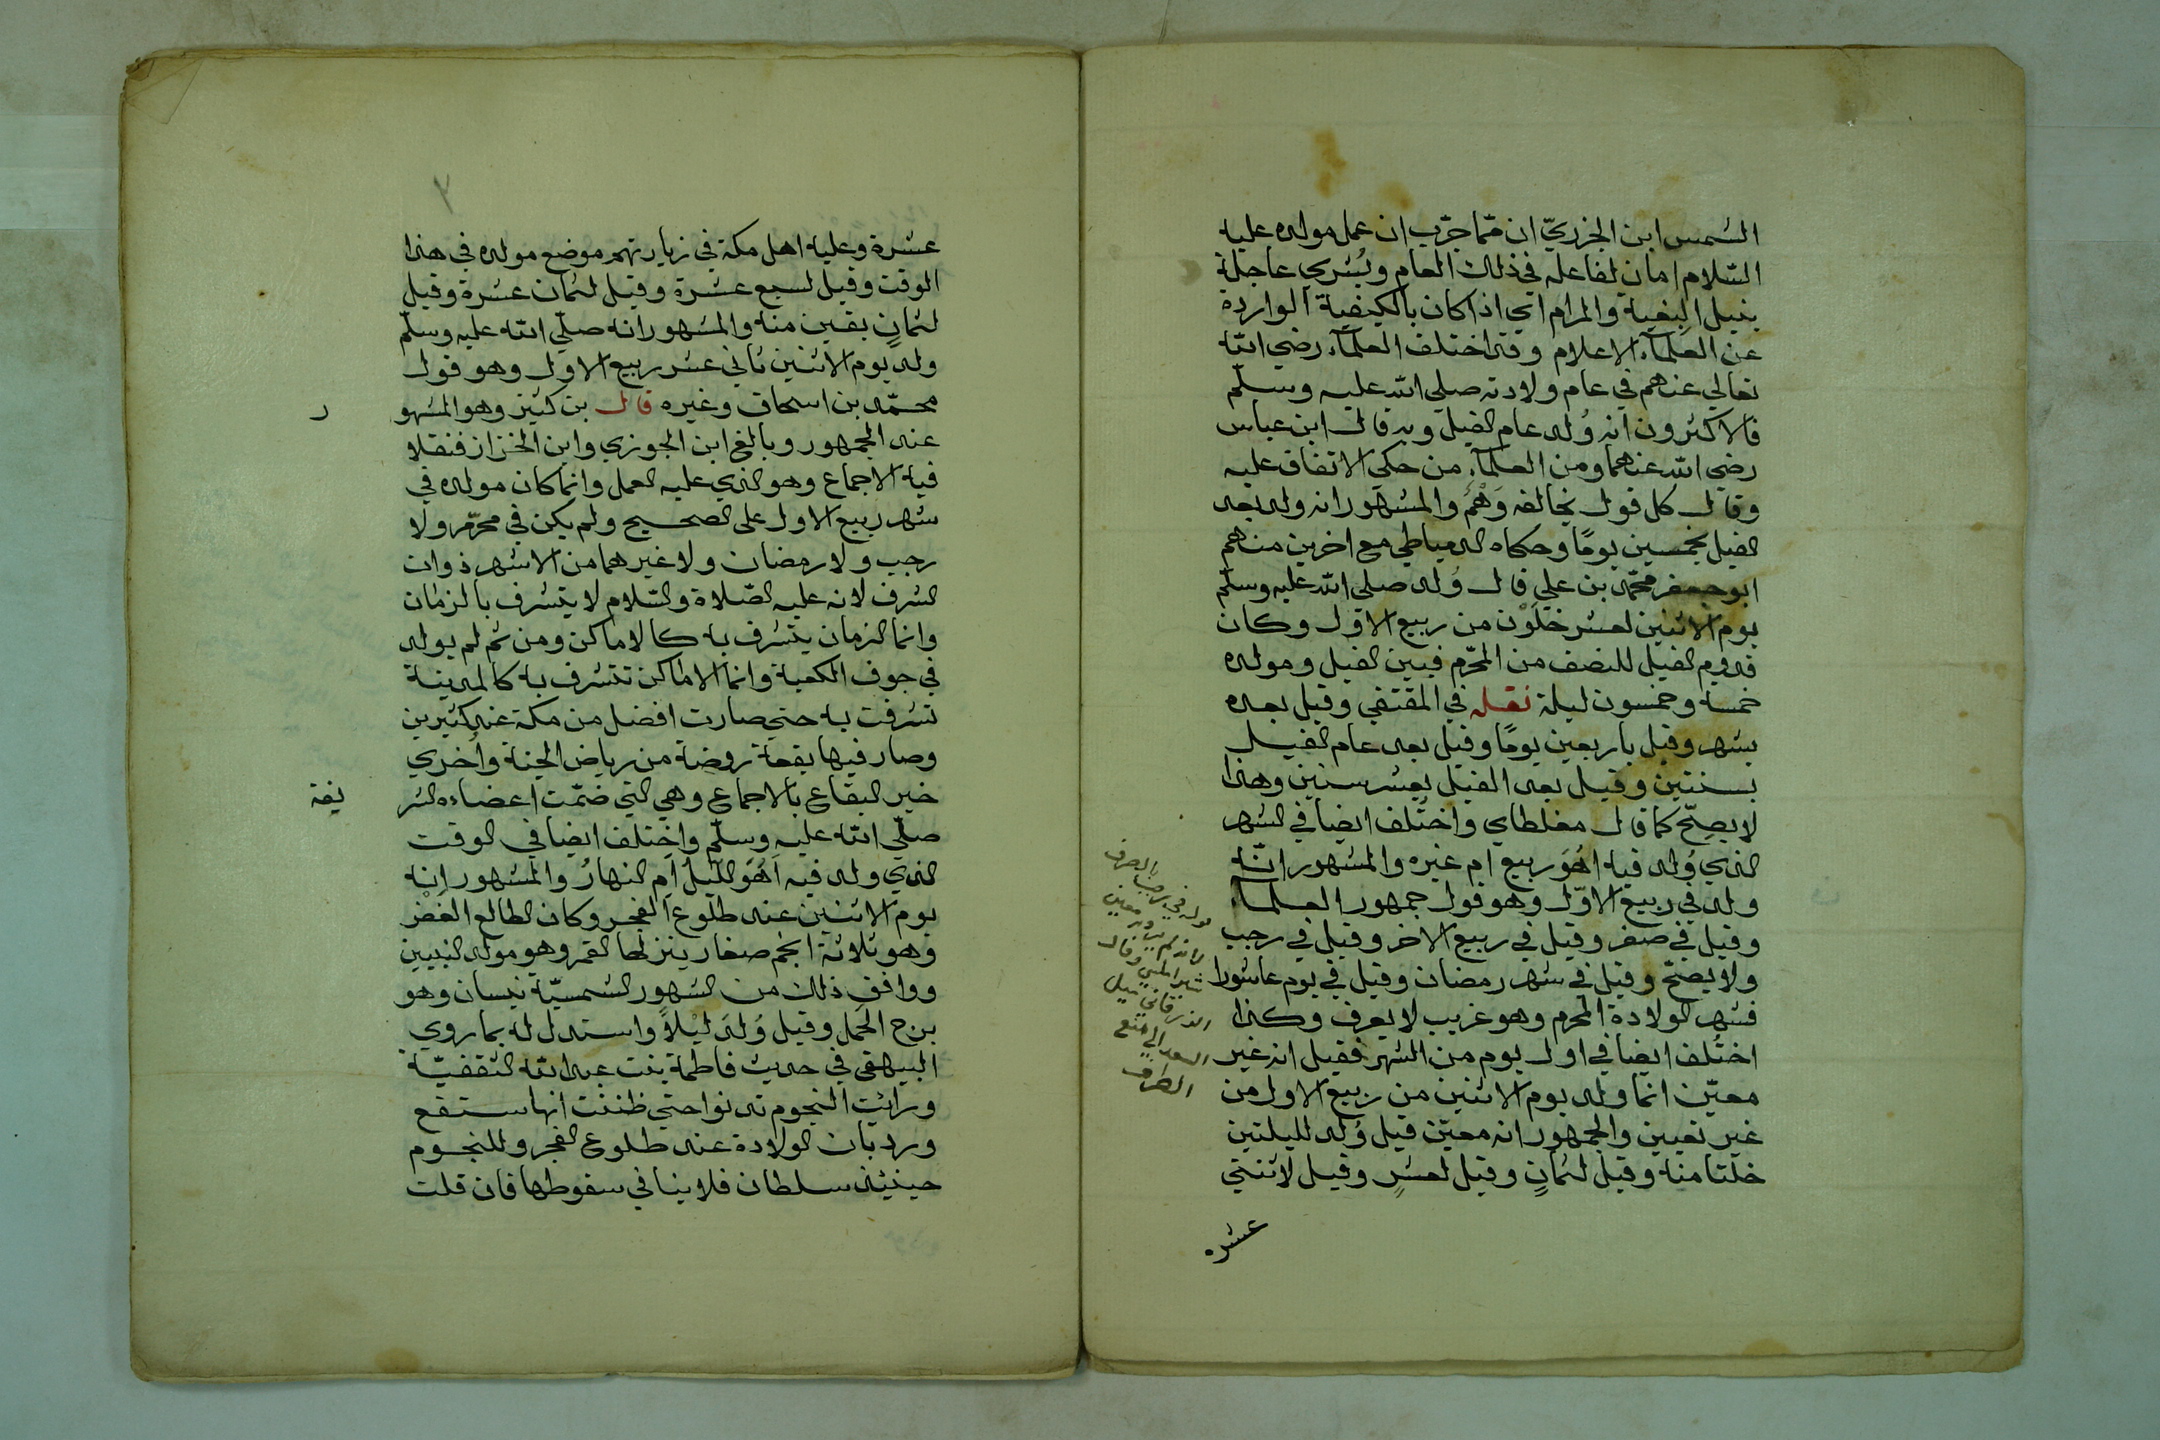 الشمس ابن الجزريّ ان ممّا جرّب ان عمل مولده عليه
السّلام امان لفاعله في ذلك العام وبُشري عاجلة
بنيل البغية والمرام اي اذا كان بالكيفية الواردة
عن العلمآء الاعلام وقد اختلف العلمآء رضي الله
تعالي عنهم في عام ولادته صلي الله عليه وسلّم
فالاكثرون انه وُلد عام الفيل وبه قال ابن عباس
رضي الله عنهما ومن العلمآء من حكي الاتفاق عليه
وقال كل قول يخالفه وَهْمٌ والمشهور انه ولد بعد
الفيل بخمسين يومًا وحكاه الدمياطي مع اخرين منهم
ابو جعفر محمّد بن علي قال وُلد صلي الله عليه وسلّم
يوم الاثنين لعشر خَلَوْن من ربيع الاول وكان
قدوم الفيل للنصف من المحرّم فبين الفيل ومولده
خمسة وخمسون ليلة نقله في المقتفي وقيل بعده
بشهر وقيل باربعين يومًا وقيل بعد عام الفيل
بسنتين وقيل بعد الفيل بعشر سنين وهذا
لا يصحّ كما قال مغلطاي واختُلف ايضا في الشهر
الذي وُلد فيه اهُوَ ربيع ام غيره والمشهور انّه
ولد في ربيع الاوّل وهو قول جمهور العلمآء
وقيل في صفر وقيل في ربيع الاخر وقيل في رجب
ولا يصحّ وقيل في شهر رمضان وقيل في يوم عاشورا
فشهر الولادة المحرم وهو غريب لا يعرف وكذا
اختُلف ايضا في اول يوم من الشهر فقيل انه غير
معيّن انما ولد يوم الاثنين من ربيع الاول من
غير تعيين والجمهور انه معيّن قيل وُلد لليلتين
خلتا منه وقيل لثمانٍ وقيل لعشرٍ وقيل لاثنتي
عشره
قوله في رجب بالصرف
لانه لم يرد به معين
شبراملسي وقال
الزرقاني قيل
السعد الي منع
الصرف
٧
عشرة وعليه اهل مكة في زيارتهم موضع مولده في هذا
الوقت وقيل لسبع عشرة وقيل لثمان عشرة وقيل
لثمانٍ بقين منه والمشهور انه صلّي الله عليه وسلّم
ولد يوم الاثنين ثاني عشر ربيع الاول وهو قول
محمّد بن اسحاق وغيره قال بن كثير وهو المشهو
ر
عند الجمهور وبالغ ابن الجوزي وابن الخزاز فنقلا
فيه الاجماع وهو الذي عليه العمل وانما كان مولده في
شهر ربيع الاول علي الصحيح ولم يكن في محرّم ولا
رجب ولا رمضان ولا غيرهما من الاشهر ذوات
الشرف لانه عليه الصّلاة والسّلام لا يتشرف بالزمان
وانما الزمان يتشرف به كالاماكن ومن ثم لم يولد
في جوف الكعبة وانما الاماكن تتشرف به كالمدينة
تشرفت به حتي صارت افضل من مكة عند كثيرين
وصار فيها بقعة روضة من رياض الجنة واُخري
خير البقاع بالاجماع وهي التي ضمّت اعضاءه الشر
يفة
صلّي الله عليه وسلّم واختلف ايضا في الوقت
الذي ولد فيه اَهُوَ اللّيلُ اَم النهارُ والمشهور انه
يوم الاثنين عند طلوع الفجر وكان الطالع الغفْر
وهو ثلاثة انجم صغار ينزلها القمر وهو مولد النبيين
ووافق ذلك من الشهور الشمسيّة نيسان وهو
برج الحمل وقيل وُلد ليْلاً واستدل له بما روي
البيهقي في حديث فاطمة بنت عبد الله الثقفيّة
ورايت النجوم تدنوا حتي ظننت انها ستقع
ورد بان الولادة عند طلوع الفجر وللنجوم
حينئذ سلطان فلا ينافي سقوطها فان قلت